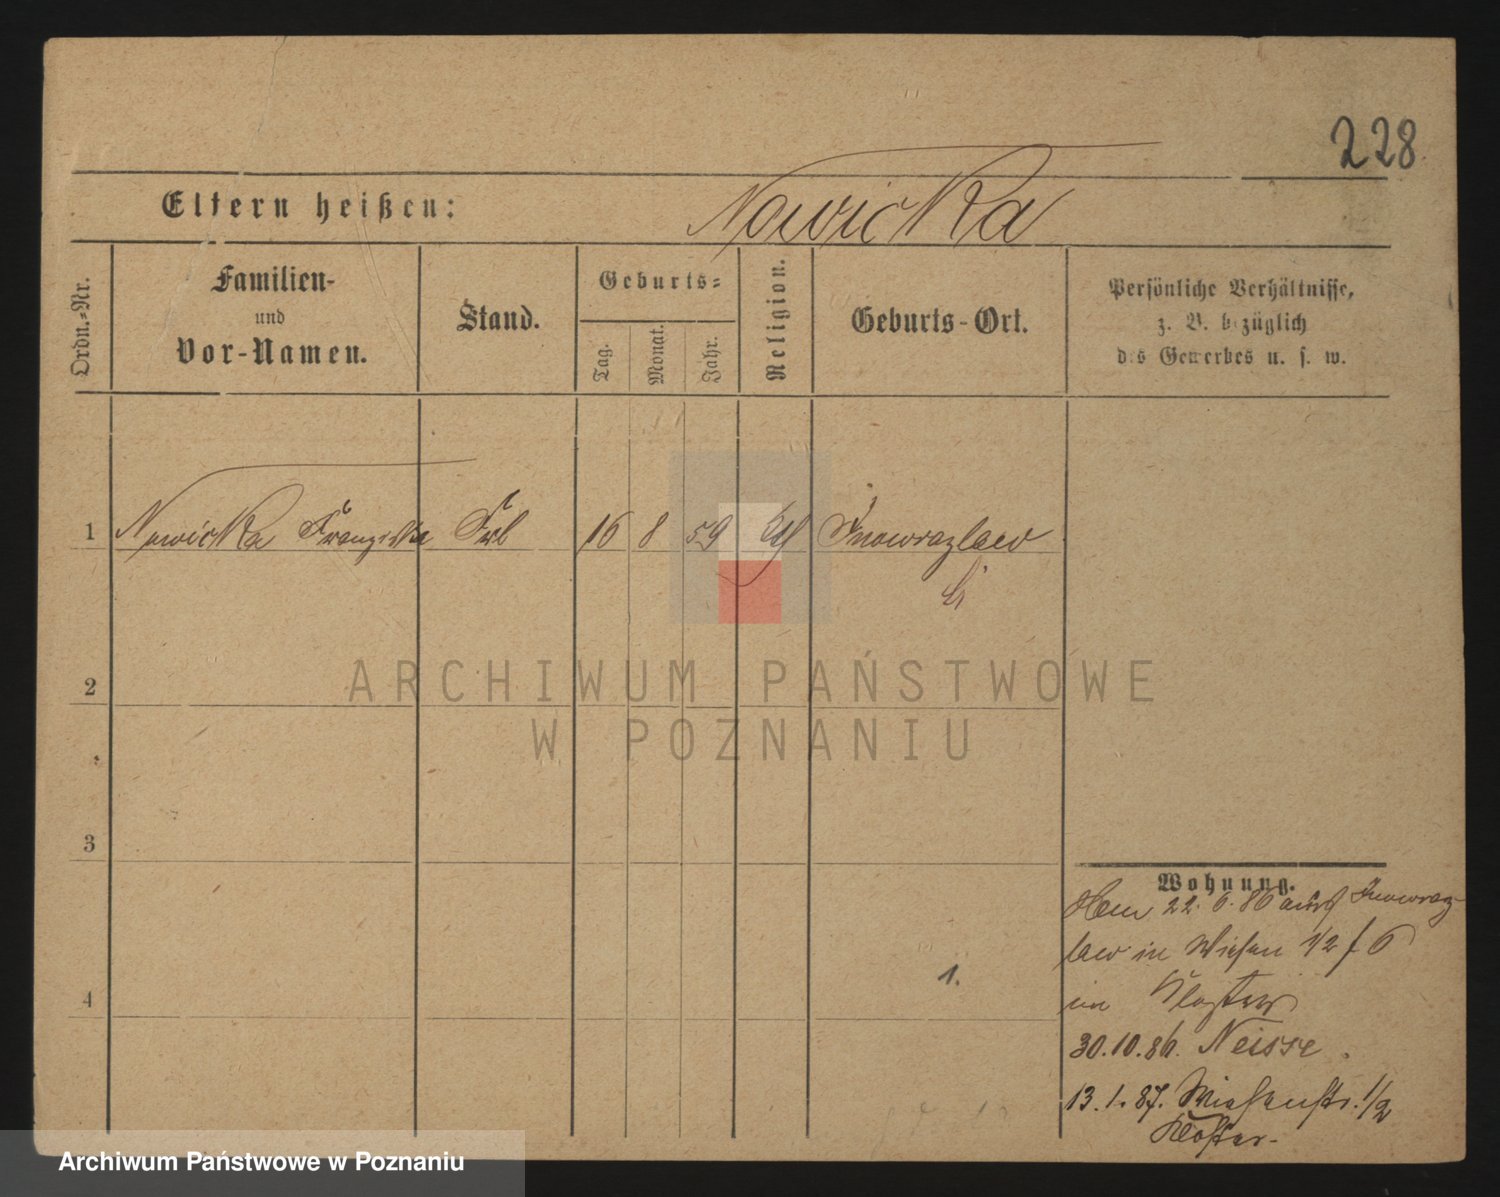 228
Eltern heißen: Nowicka
Ordn.-Nr.
Familien-
und
Vor-Namen.
Stand.
Geburts-
Tag.
Monat.
Jahr.
Religion.
Geburts-Ort.
Persönliche Verhältnisse,
z. B. bezüglich
des Gewerbes u. s. w.
1 Nowicka Franziska Frl 16 8 59 Inowrazlaw
2
ARCHIWUM PAŃSTWOWE
W POZNANIU
3
Wohnung.
22. 6. 86 aus Inowraz-
law in Wiesen 1/2 f 6
im Kloster
4
1.
30.10.86. Neisse.
13.1.87. Wiesenstr. 1/2
Kloster-
Archiwum Państwowe w Poznaniu